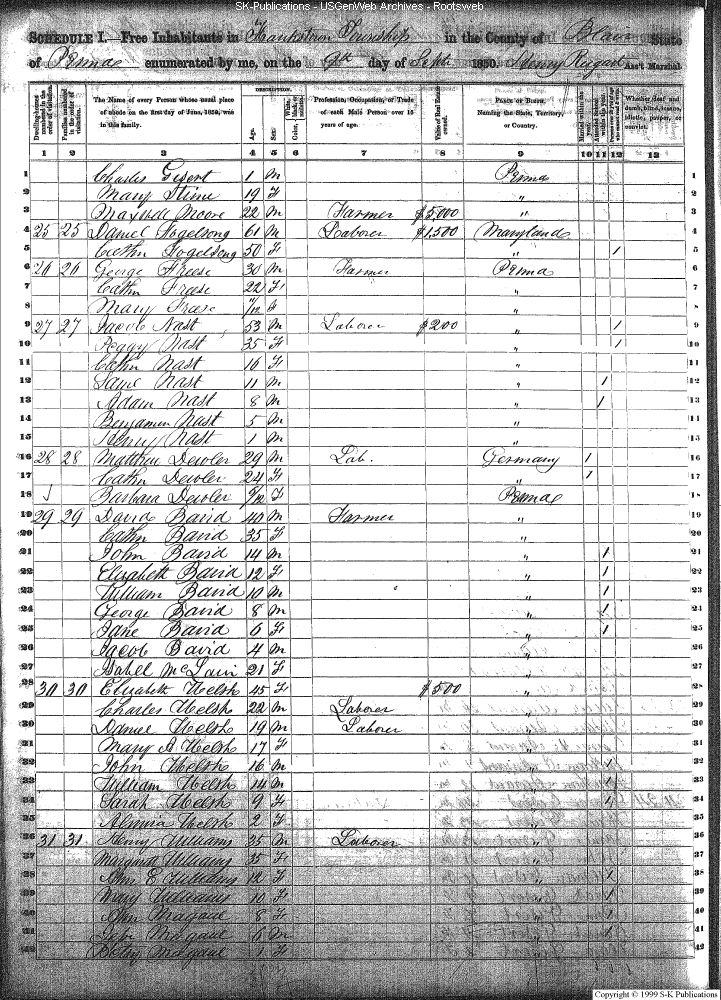 SK-Publications - USGenWeb Archives - Rootsweb
SCHEDULE I.—Free Inhabitants in Frankstown Township in the County of Blair State
of Penna enumerated by me, on the 9th day of Sept. 1850. Henry Ass't Marshal.
DESCRIPTION.
Dwelling-houses numbered in the order of visitation. Families numbered in the order of visitation. The Name of every Person whose usual place of abode on the first day of June, 1850, was in this family. Age. Sex. White, black, or mulatto. Color, Profession, Occupation, or Trade of each Male Person over 15 years of age. Value of Real Estate owned. PLACE OF BIRTH. Naming the State, Territory, or Country. Married within the year. Whether deaf and dumb, blind, insane, idiotic, pauper, or convict.
1 2 3 4 5 6 7 8 9 10 11 12 13
1 Charles Gisert 1 M Penna 1
2 Mary Stine 19 F " 2
3 Moore 22 M Farmer $5000 " 3
4 25 25 Daniel Fogelsong 61 M Laborer $1,500 Maryland 4
5 Cathn Fogelsong 50 F " / 5
6 26 26 George Freese 30 M Farmer Penna 6
7 Cathn Freese 22 F " 7
8 Mary Freese /12 " 8
9 27 27 Jacob Nast 53 M Laborer $200 " / 9
10 Peggy Nast 35 F " / 10
11 Cathn Nast 16 F " 11
12 Nast 11 M " / 12
13 Adam Nast 8 M " / 13
14 Benjamin Nast 5 M " 14
15 Henry Nast 1 M " 15
16 28 28 Matthew Deivler 29 M Lab. Germany / 16
17 Cathn Deivler 24 F " / 17
18 Barbara Deivler /12 F Penna 18
19 29 29 David Baird 40 M Farmer " 19
20 Cathn Baird 35 F " 20
21 John Baird 14 M " / 21
22 Elizabeth Baird 12 F " / 22
23 William Baird 10 M " / 23
24 George Baird 8 M " / 24
25 Jane Baird 6 F " / 25
26 Jacob Baird 4 M " 26
27 Isabel McLain 21 F " 27
28 30 30 Elizabeth Welsh 45 F $500 " 28
29 Charles Welsh 22 M Laborer " 29
30 Daniel Welsh 19 M Laborer " 30
31 Mary A Welsh 17 F " 31
32 John Welsh 16 M " / 32
33 William Welsh 14 M " / 33
34 Sarah Welsh 9 F " / 34
35 Almira Welsh 2 F " 35
36 31 31 Henry Williams 35 M Laborer " 36
37 Margaret Williams 35 F " 37
38 E Williams 12 F " / 38
39 Mary Williams 10 F " / 39
40 8 F " / 40
41 6 M " / 41
42 1 F " 42
Copyright © 1999 S-K Publications